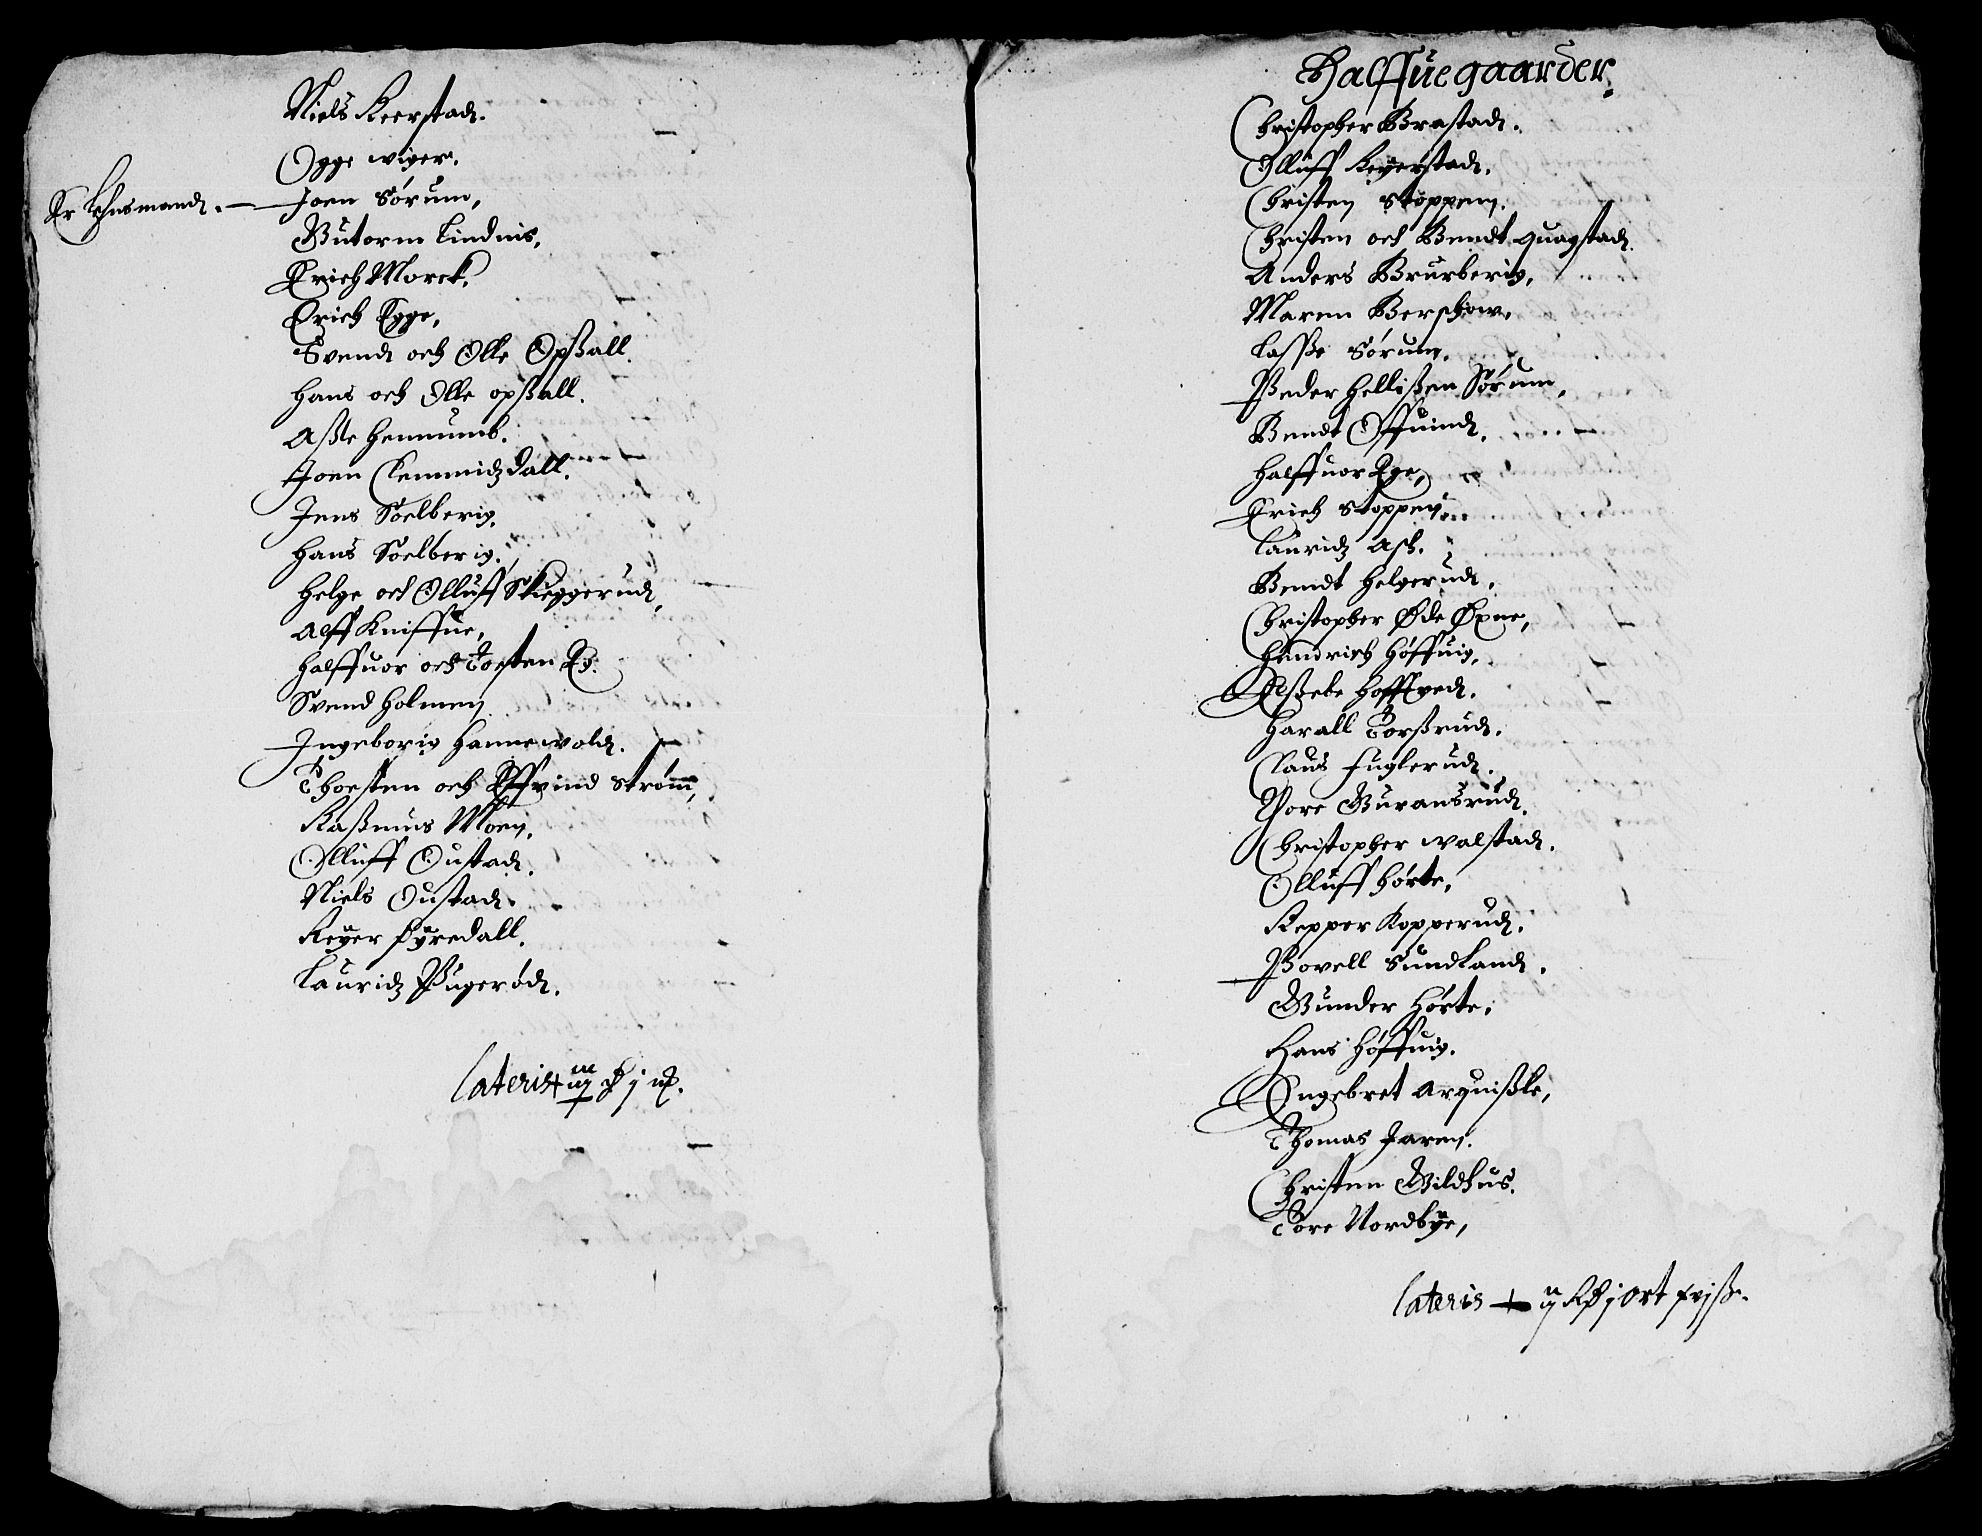 Niels Keerstad.
Ogge wiger.
Er Lehnsmand. — Joen Sørum,
Gutorm Lindnis,
Erich Morck,
Erich Egge,
Svend och Olle Opßall.
Hans och Olle opßall.
Aßle Hennumb.
Joen Clemmidzdall.
Jens Soelberig.
Hans Soelberig.
Helge och Olluff Skieggerud,
Alff Kniffue,
Halffuor och Torsten Eg.
Svend Holmen
Ingeborig Hannevold.
Thorsten och Effvind Strøm,
Raßmus Moen.
Olluff Oustad.
Niels Oustad.
Reÿer Fÿredall.
Lauridz Bugerød.
Lateris
Halffuegaarder.
Christopher Brastad.
Olluff Keÿerstad.
Christen Stoppen.
Christen och Bendt Quagstad.
Anders Brurberig,
Maren Berschow,
Laße Sørum.
Peder Hellißen Sørum,
Bendt Offuind.
Halffuor Ege,
Erich Stoppen
Lauridz Ash.
Bendt Helgerud.
Christopher Øde Øxne,
Hendrich Høffuig,
Elßebe Hoffved.
Harall Torßrud.
Claus Fuglerud.
Thore Guransrud.
Christopher walstad.
Olluff Hørte,
Kepper Kopperud.
Povell Sundland.
Gunder Hørte.
Hans Høffuig.
Engebret Arquißle,
Thomas Jaren.
Christen Gildhus.
Tore Nordbÿe,
Lateris ort